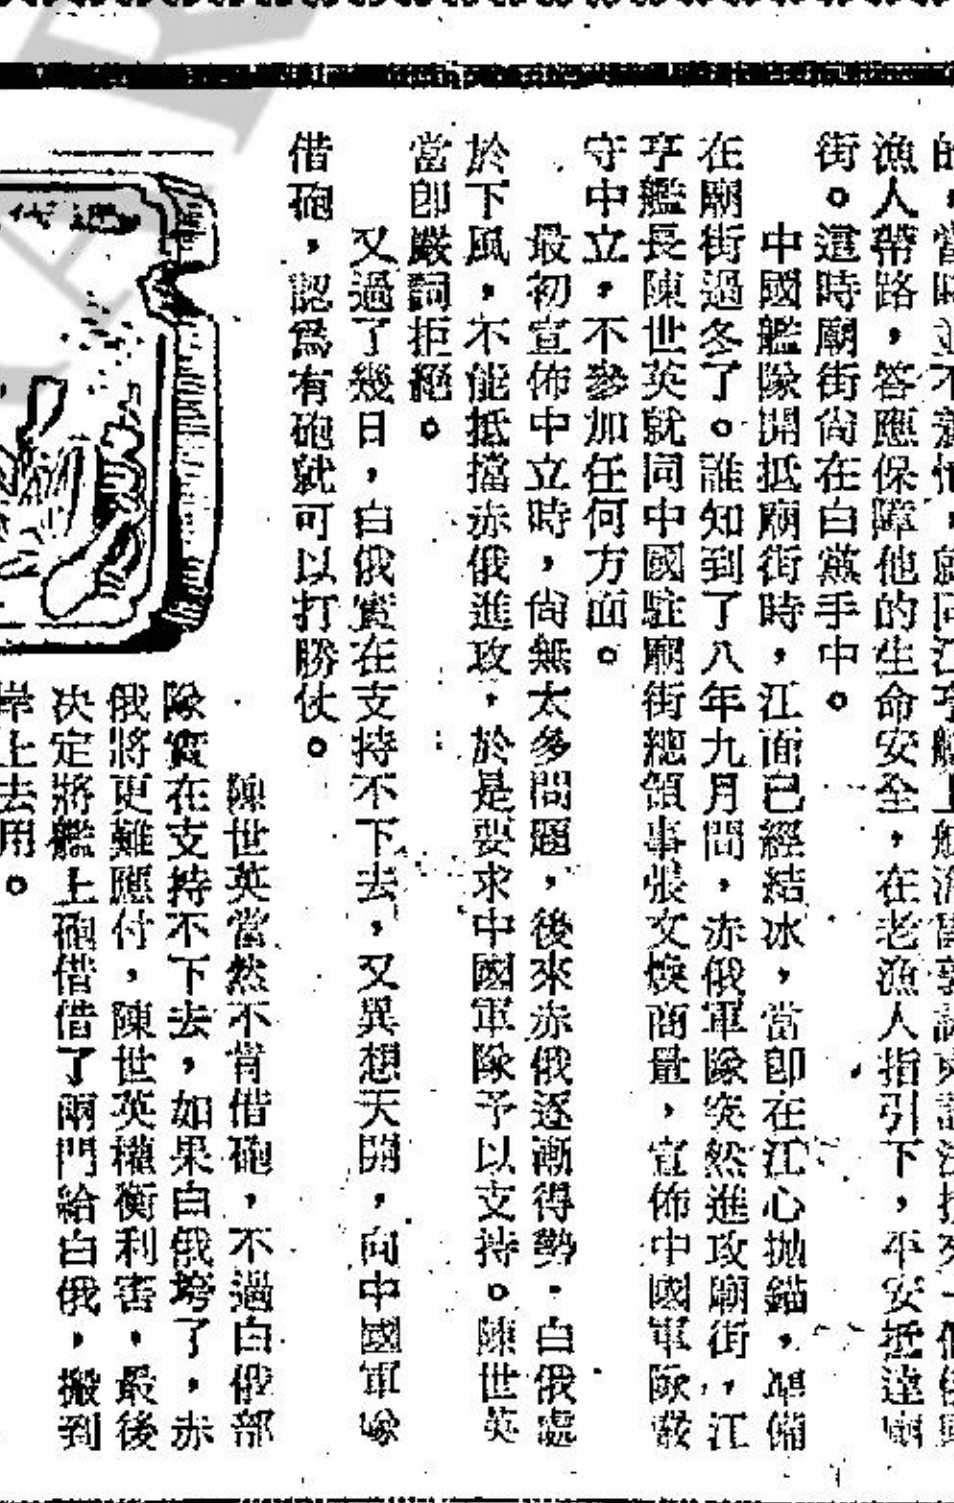 漁人帶路，答應保障他的生命安全，在老漁人指引下，平安抵達廟
街。這時廟街尙在白黨手中。
中國艦隊開抵廟街時，江面已經結冰，當卽在江心拋錨，準備
在廟街過冬了。誰知到了八年九月間，赤俄軍隊突然進攻廟街，江
亨艦長陳世英就同中國駐廟街總領事張文煥商量，宣佈中國軍隊嚴
守中立，不參加任何方面。
最初宣佈中立時，尙無太多問題，後來赤俄逐漸得勢，白俄處
於下風，不能抵擋赤俄進攻，於是要求中國軍隊予以支持。陳世英
當卽嚴詞拒絕。
又過了幾日，白俄實在支持不下去，又異想天開，向中國軍隊
借砲，認爲有砲就可以打勝仗。
陳世英當然不肯借砲，不過白俄部
隊實在支持不下去，如果白俄垮了，赤
俄將更難應付，陳世英權衡利害，最後
决定將艦上砲借借了兩門給白俄，搬到
岸上去用。